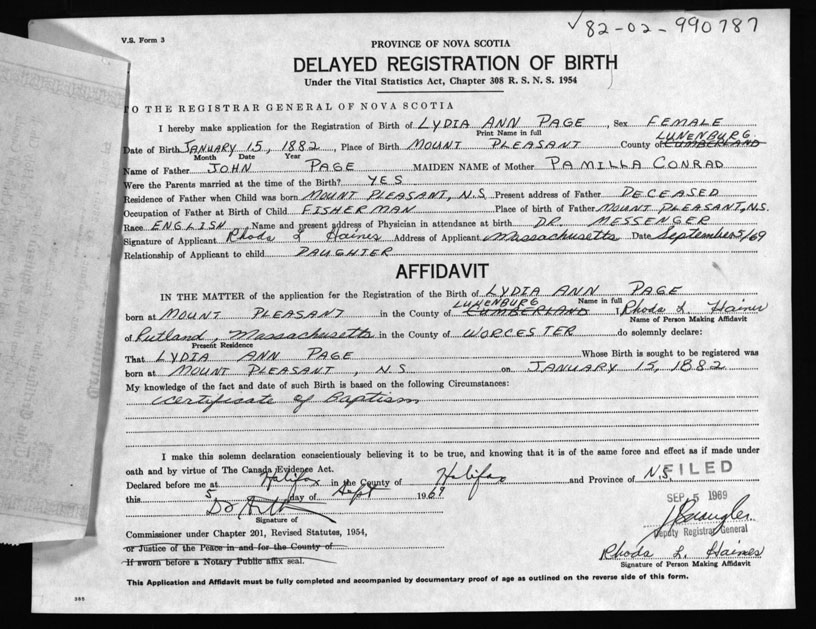 √82-02-990787
V.S. Form 3
PROVINCE OF NOVA SCOTIA
DELAYED REGISTRATION OF BIRTH
Under the Vital Statistics Act, Chapter 308 R. S. N. S. 1954
TO THE REGISTRAR GENERAL OF NOVA SCOTIA
I hereby make application for the Registration of Birth of LYDIA ANN PAGE, Sex FEMALE
Print Name in full
LUNENBURG.
Date of Birth JANUARY 15, 1882, Place of Birth MOUNT PLEASANT County of CUMBERLAND
Month Date Year
Name of Father JOHN PAGE MAIDEN NAME of Mother PAMILLA CONRAD
Were the Parents married at the time of the Birth? YES
Residence of Father when Child was born MOUNT PLEASANT, N.S. Present address of Father DECEASED
Occupation of Father at Birth of Child FISHERMAN Place of birth of Father MOUNT PLEASANT, N.S.
Race ENGLISH Name and present address of Physician in attendance at birth DR. MESSENGER
Signature of Applicant Rhoda L Haines Address of Applicant Massachusetts Date September 5/69
Relationship of Applicant to child DAUGHTER
AFFIDAVIT
IN THE MATTER of the application for the Registration of the Birth of LYDIA ANN PAGE
Name in full
LUNENBURG
born at MOUNT PLEASANT in the County of CUMBERLAND I, Rhoda L. Haines
Name of Person Making Affidavit
of Rutland, Massachusetts in the County of WORCESTER do solemnly declare:
Present Residence
That LYDIA ANN PAGE Whose Birth is sought to be registered was
born at MOUNT PLEASANT, N.S. on JANUARY 15, 1882
My knowledge of the fact and date of such Birth is based on the following Circumstances:
Certificate of Baptism
I make this solemn declaration conscientiously believing it to be true, and knowing that it is of the same force and effect as if made under
oath and by virtue of The Canada Evidence Act.
Declared before me at Halifax in the County of Halifax and Province of N.S.
FILED
this 5 day of Sept 1969
SEP 5 1969
Signature of
Deputy Registrar General
Commissioner under Chapter 201, Revised Statutes, 1954,
or Justice of the Peace in and for the County of
Rhoda L. Haines
If sworn before a Notary Public affix seal.
Signature of Person Making Affidavit
This Application and Affidavit must be fully completed and accompanied by documentary proof of age as outlined on the reverse side of this form.